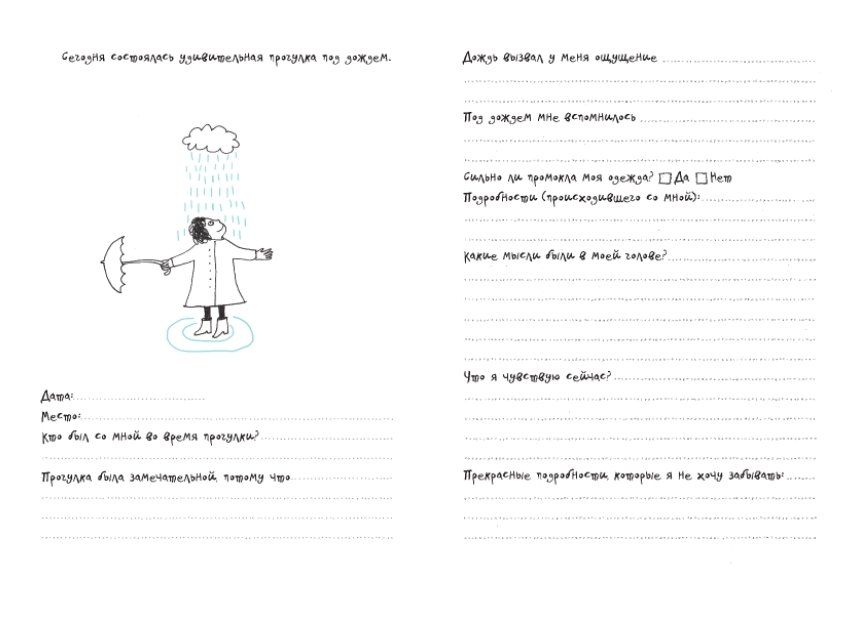 Сегодня состоялась удивительная прогулка под дождем.
Дата:
Место:
Кто был со мной во время прогулки?
Прогулка была замечательной, потому что
Дождь вызвал у меня ощущение
Под дождем мне вспомнилось
Сильно ли промокла моя одежда? Да Нет
Подробности (происходившего со мной):
Какие мысли были в моей голове?
Что я чувствую сейчас?
Прекрасные подробности, которые я не хочу забывать: